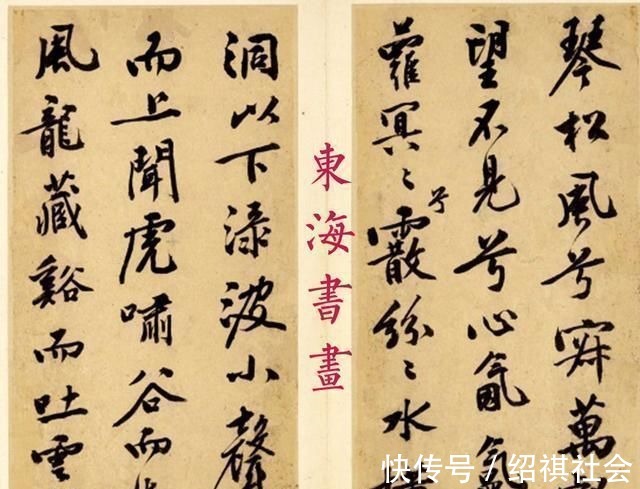 琴松風兮寂萬
望不見兮心
蘿冥〻兮霰紛〻水
東海書畫
洞以下淥波小聲
而上聞虎嘯谷而
風龍藏谿而吐雲
快传号/绍祺社会